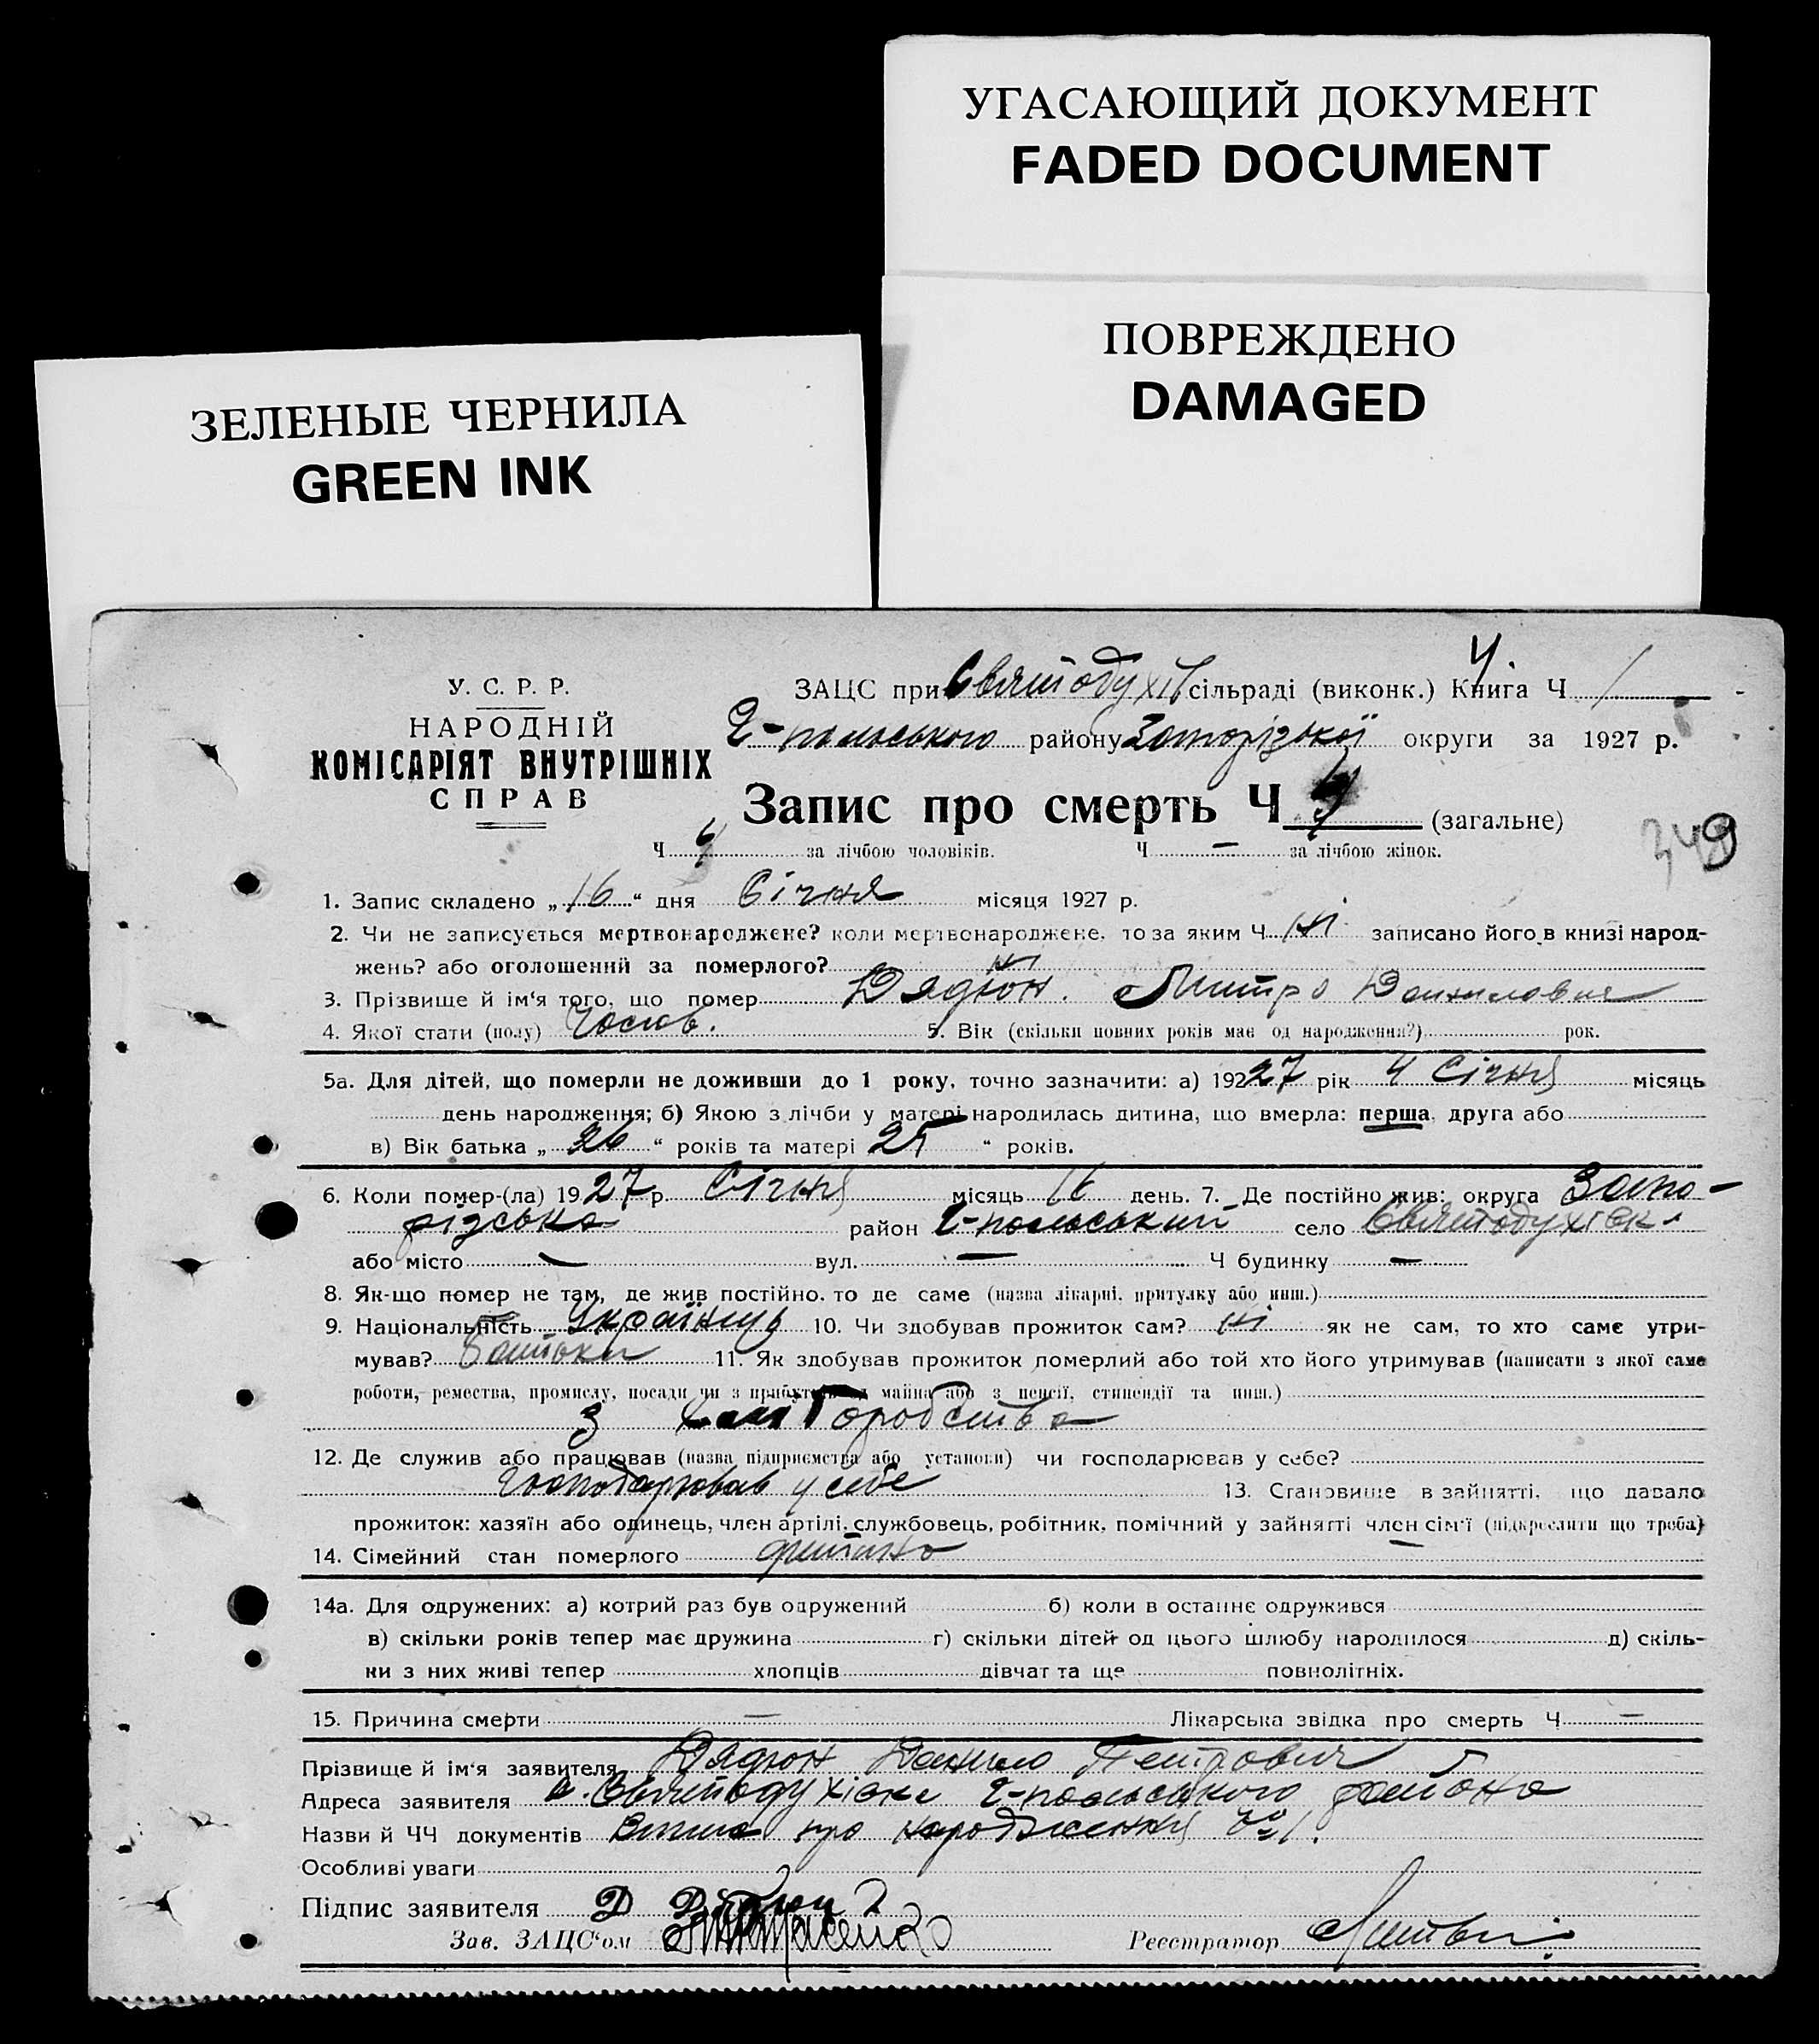 УГАСАЮЩИЙ ДОКУМЕНТ
FADED DOCUMENT
ПОВРЕЖДЕНО
DAMAGED
ЗЕЛЕНЫЕ ЧЕРНИЛА
GREEN INK
У. С. Р. Р.
НАРОДНІЙ
КОМІСАРІЯТ ВНУТРІШНІХ
СПРАВ
4.
ЗАЦС при Святодухів сільраді (виконк.) Книга Ч 1
-польського району Запорізької округи за 1927 р.
Запис про смерть Ч 4 (загальне)
349
Ч 4 за лічбою чоловіків. Ч — за лічбою жінок.
1. Запис складено „16“ дня Січня місяця 1927 р.
2. Чи не записується мертвонароджене? коли мертвонароджене, то за яким Ч ні записано його в книзі народ-
жень? або оголошений за померлого? ні
3. Прізвище й ім‘я того, що помер Дядюн. Дмитро Данилович
4. Якої стати (полу) Чолов. 5. Вік (скільки повних років має од народження?) рок.
5а. Для дітей, що померли не доживши до 1 року, точно зазначити: а) 192 27 рік 4 Січня місяць
день народження; б) Якою з лічби у матері народилась дитина, що вмерла: перша, друга або
в) Вік батька „26“ років та матері 25“ років.
6. Коли помер-(ла) 19 27 р. Січня місяць 16 день. 7. Де постійно жив: округа Запо-
різська район -польський село Святодухівк.
або місто — вул. — Ч будинку —
8. Як-що помер не там, де жив постійно, то де саме (назва лікарні, притулку або инш.)
9. Національність Українець 10. Чи здобував прожиток сам? ні як не сам, то хто саме утри-
мував? Батьки 11. Як здобував прожиток померлий або той хто його утримував (написати з якої саме
роботи, ремества, промислу, посади чи з прибутків од майна або з пенсії, стипендії та инш.)
з
12. Де служив або працював (назва підприємства або установи) чи господарював у себе?
Господарював у себе 13. Становище в зайнятті, що давало
прожиток: хазяїн або одинець, член артілі, службовець, робітник, помічний у зайнятті член сім‘ї (підкреслити що треба)
14. Сімейний стан померлого дитина
14а. Для одружених: а) котрий раз був одружений б) коли в останнє одружився
в) скільки років тепер має дружина г) скільки дітей од цього шлюбу народилося д) скіль-
ки з них живі тепер хлопців дівчат та ще повнолітніх.
15. Причина смерти — Лікарська звідка про смерть Ч —
Прізвище й ім‘я заявителя Дядюн Данило Петрович
Адреса заявителя с. Святодухівка -польського района
Назви й ЧЧ документів Випис про народження № 1.
Особливі уваги
Підпис заявителя Д
Зав. ЗАЦС‘ом Реєстратор